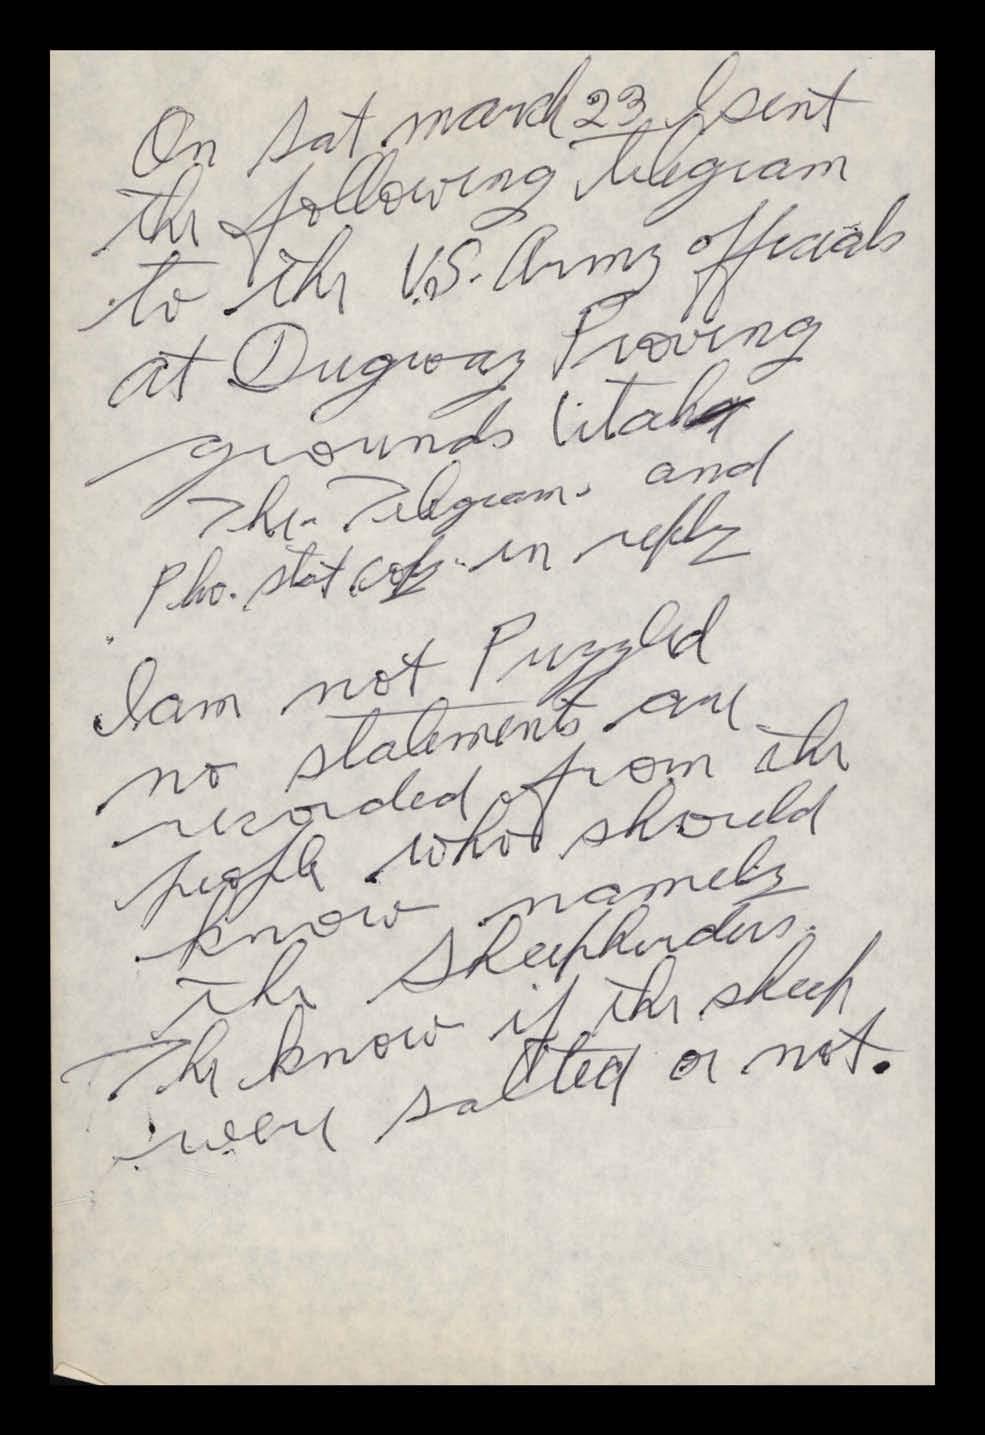 On Sat. march 23 I sent
the following telegram
to the U.S. Army officials
at Dugway Proving
grounds Utah
The Telegram. and
Pho. stat copy. in reply
I am not Puzzled
no statements are
recorded from the
people who should
know namely
the Sheepherders.
The know if the sheep
were salted or not.